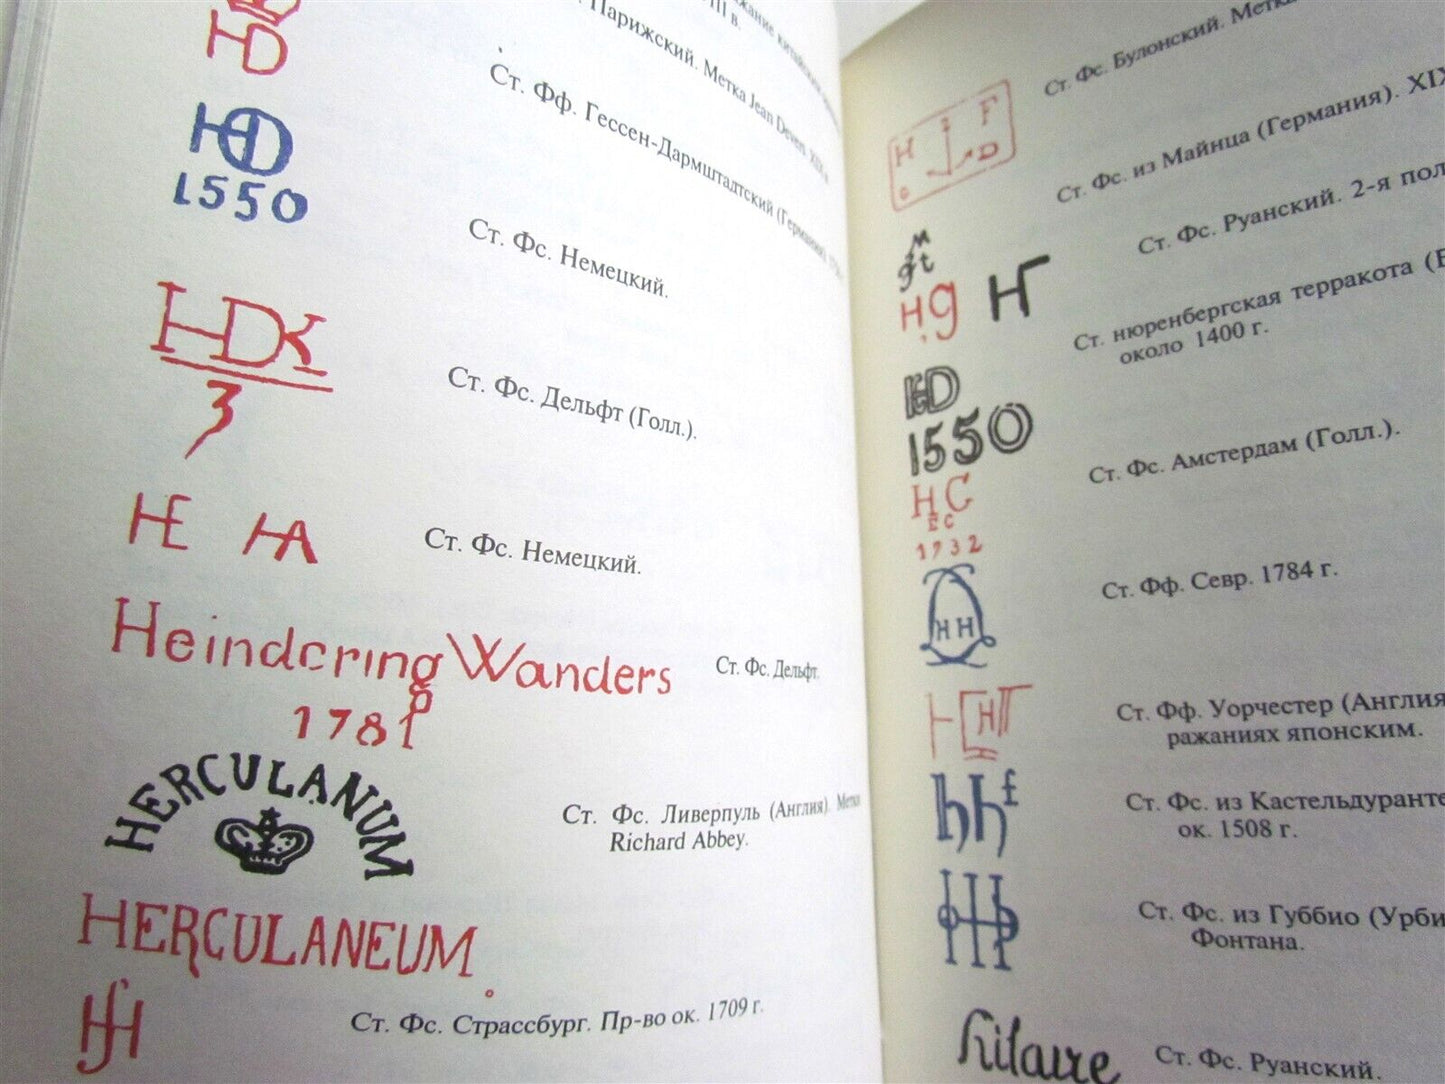 HD
Парижский. Метка Jean Devers. XIX в.
Ст. Фф. Гессен-Дармштадтский (Германия).
HD
1550
Ст. Фс. Немецкий.
HDK
3
Ст. Фс. Дельфт (Голл.).
HE HA
Ст. Фс. Немецкий.
Heindering Wanders
1781
Ст. Фс. Дельфт.
HERCULANUM
Ст. Фс. Ливерпуль (Англия). Метка
Richard Abbey.
HERCULANEUM.
H
Ст. Фс. Страссбург. Пр-во ок. 1709 г.
Ст. Фс. Булонский. Метка
H F
D
Ст. Фс. из Майнца (Германия). XIX
Ст. Фс. Руанский. 2-я пол
Hg
Ст. нюренбергская терракота (
около 1400 г.
1550
Ст. Фс. Амстердам (Голл.).
HC
1732
Ст. Фф. Севр. 1784 г.
HH
Ст. Фф. Уорчестер (Англия
ражаниях японским.
hhf
Ст. Фс. из Кастельдуранте
ок. 1508 г.
Ст. Фс. из Губбио (Урби
Фонтана.
hilaire
Ст. Фс. Руанский.